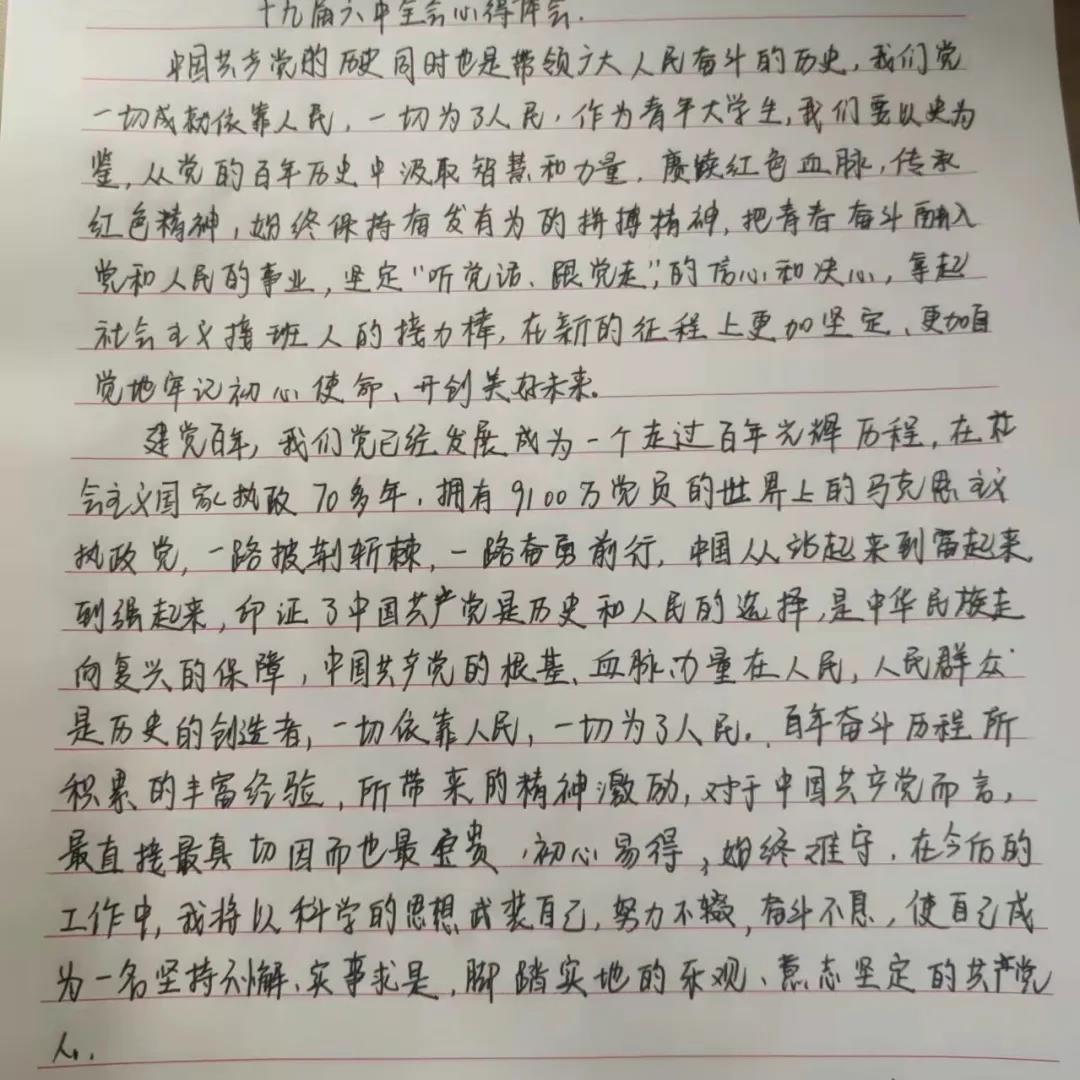 十九届六中全会心得体会.
中国共产党的历史同时也是带领广大人民奋斗的历史,我们党
一切成就依靠人民,一切为了人民,作为青年大学生,我们要以史为
鉴,从党的百年历史中汲取智慧和力量,赓续红色血脉,传承
红色精神,始终保持奋发有为的拼搏精神,把青春奋斗融入
党和人民的事业,坚定"听党话、跟党走",的信心和决心,争起
社会主义接班人的接力棒,在新的征程上更加坚定、更加自
觉地牢记初心使命、开创美好未来。
建党百年,我们党已经发展成为一个走过百年光辉历程,在社
会主义国家执政70多年,拥有9100万党员的世界上的马克思主义
执政党,一路披荆斩棘,一路奋勇前行,中国从站起来到富起来
到强起来,印证了中国共产党是历史和人民的选择,是中华民族走
向复兴的保障,中国共产党的根基、血脉、力量在人民,人民群众
是历史的创造者,一切依靠人民,一切为了人民。百年奋斗历程所
积累的丰富经验,所带来的精神激励,对于中国共产党而言,
最直接最真切因而也最宝贵,初心易得,始终难守,在今后的
工作中,我将以科学的思想武装自己,努力不辍,奋斗不息,使自己成
为一名坚持不懈、实事求是,脚踏实地的乐观、意志坚定的共产党
人.